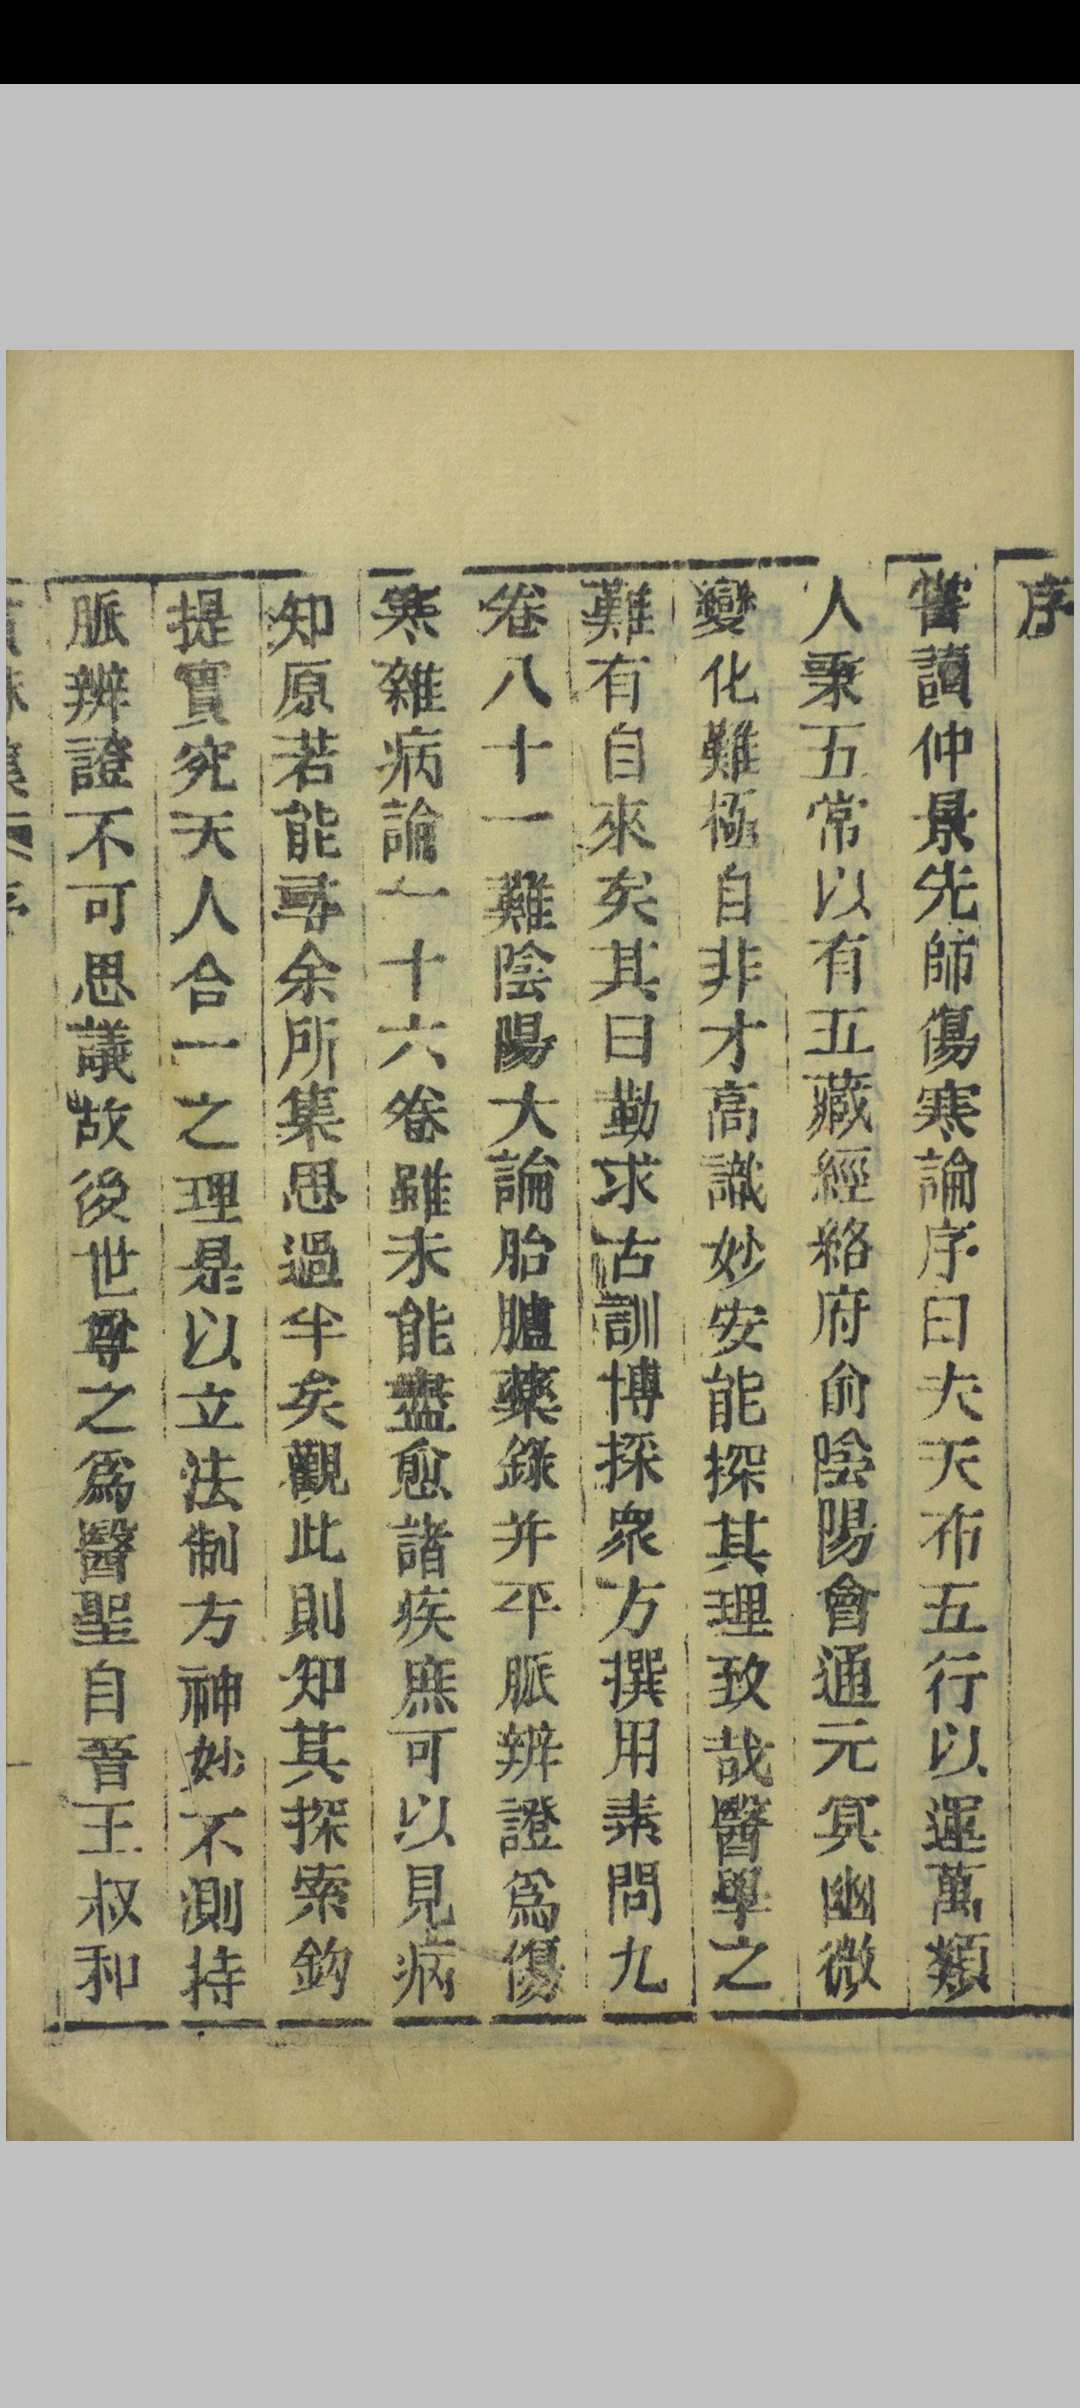 序
嘗讀仲景先師傷寒論序曰夫天布五行以運萬類
人稟五常以有五藏經絡府俞陰陽會通元冥幽微
變化難極自非才高識妙安能探其理致哉醫學之
難有自來矣其曰勤求古訓博採衆方撰用素問九
卷八十一難陰陽大論胎臚藥錄并平脈辨證爲傷
寒雜病論一十六卷雖未能盡愈諸疾庶可以見病
知原若能尋余所集思過半矣觀此則知其探索鈎
提實究天人合一之理是以立法制方神妙不測持
脈辨證不可思議故後世尊之爲醫聖自晉王叔和